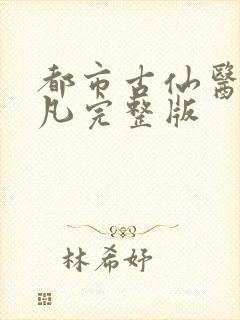 都市古仙醫
凡完整版
林希妤